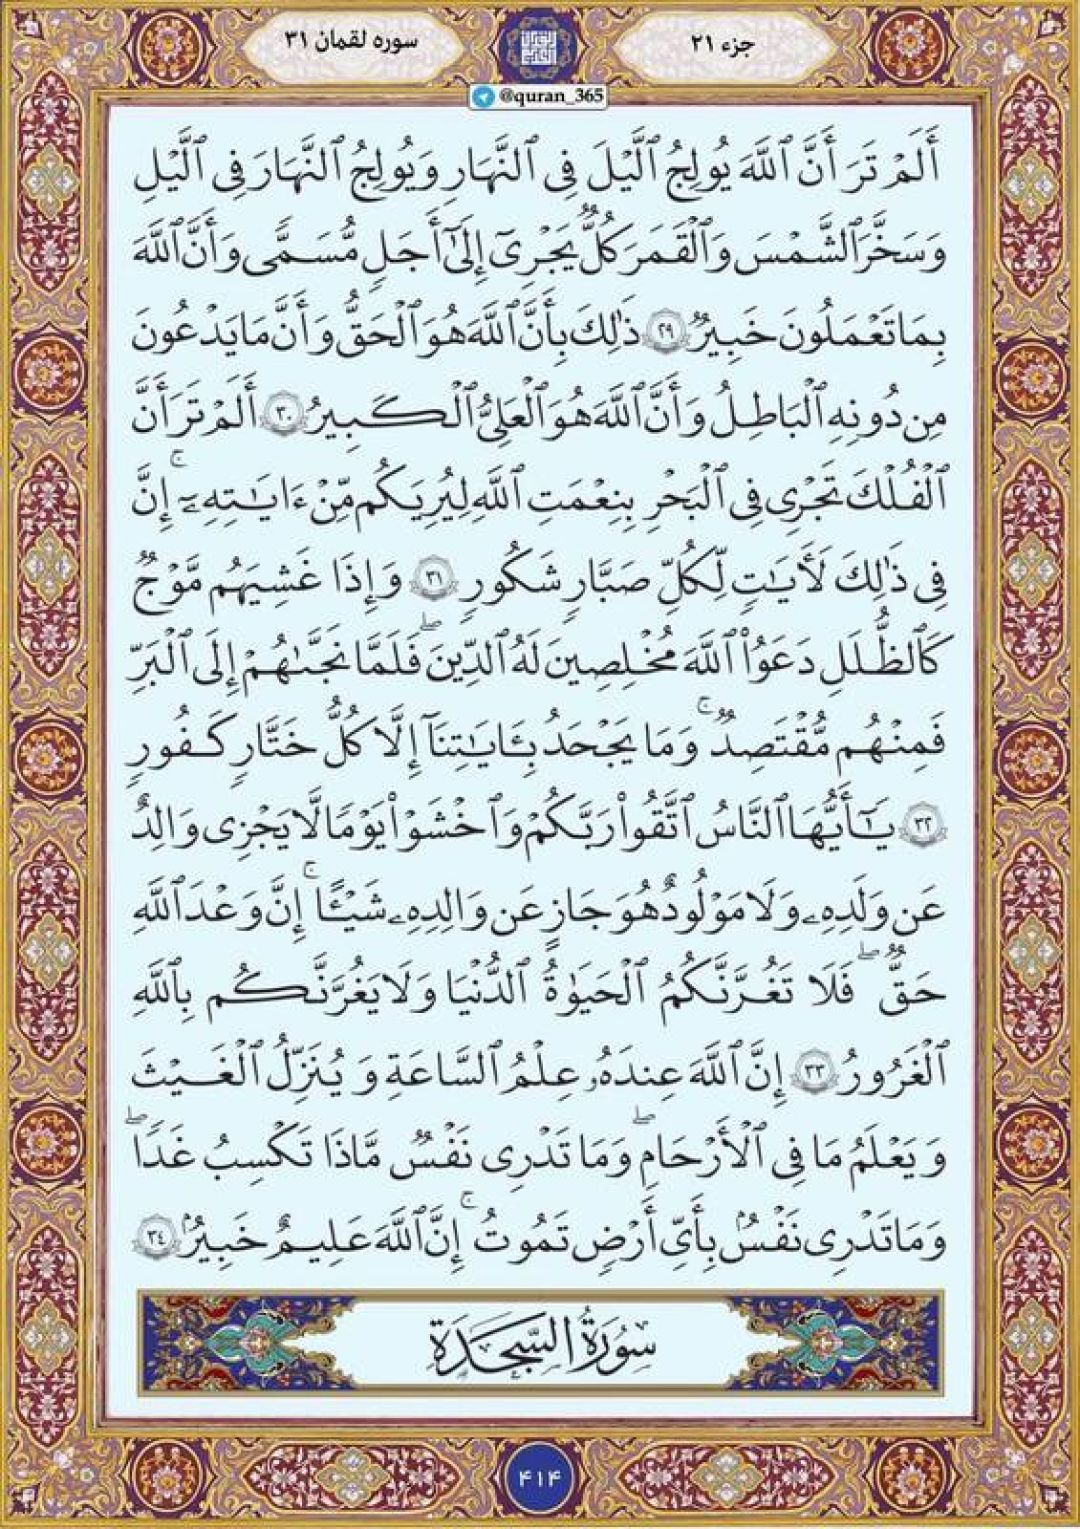 جزء ۲۱
سوره لقمان ۳۱
@quran_365
أَلَمْ تَرَ أَنَّ ٱللَّهَ يُولِجُ ٱلَّيْلَ فِى ٱلنَّهَارِ وَيُولِجُ ٱلنَّهَارَ فِى ٱلَّيْلِ
وَسَخَّرَ ٱلشَّمْسَ وَٱلْقَمَرَ كُلٌّ يَجْرِىٓ إِلَىٰٓ أَجَلٍ مُّسَمًّى وَأَنَّ ٱللَّهَ
بِمَا تَعْمَلُونَ خَبِيرٌ ٢٩ ذَٰلِكَ بِأَنَّ ٱللَّهَ هُوَ ٱلْحَقُّ وَأَنَّ مَا يَدْعُونَ
مِن دُونِهِ ٱلْبَاطِلُ وَأَنَّ ٱللَّهَ هُوَ ٱلْعَلِىُّ ٱلْكَبِيرُ ٣٠ أَلَمْ تَرَ أَنَّ
ٱلْفُلْكَ تَجْرِى فِى ٱلْبَحْرِ بِنِعْمَتِ ٱللَّهِ لِيُرِيَكُم مِّنْ ءَايَٰتِهِۦٓ ۚ إِنَّ
فِى ذَٰلِكَ لَءَايَٰتٍ لِّكُلِّ صَبَّارٍ شَكُورٍ ٣١ وَإِذَا غَشِيَهُم مَّوْجٌ
كَٱلظُّلَلِ دَعَوُا۟ ٱللَّهَ مُخْلِصِينَ لَهُ ٱلدِّينَ ۖ فَلَمَّا نَجَّىٰهُمْ إِلَى ٱلْبَرِّ
فَمِنْهُم مُّقْتَصِدٌ ۚ وَمَا يَجْحَدُ بِـَٔايَٰتِنَآ إِلَّا كُلُّ خَتَّارٍ كَفُورٍ
٣٢ يَٰٓأَيُّهَا ٱلنَّاسُ ٱتَّقُوا۟ رَبَّكُمْ وَٱخْشَوْا۟ يَوْمًا لَّا يَجْزِى وَالِدٌ
عَن وَلَدِهِۦ وَلَا مَوْلُودٌ هُوَ جَازٍ عَن وَالِدِهِۦ شَيْـًٔا ۚ إِنَّ وَعْدَ ٱللَّهِ
حَقٌّ ۖ فَلَا تَغُرَّنَّكُمُ ٱلْحَيَوٰةُ ٱلدُّنْيَا وَلَا يَغُرَّنَّكُم بِٱللَّهِ
ٱلْغَرُورُ ٣٣ إِنَّ ٱللَّهَ عِندَهُۥ عِلْمُ ٱلسَّاعَةِ وَيُنَزِّلُ ٱلْغَيْثَ
وَيَعْلَمُ مَا فِى ٱلْأَرْحَامِ ۖ وَمَا تَدْرِى نَفْسٌ مَّاذَا تَكْسِبُ غَدًا ۖ
وَمَا تَدْرِى نَفْسٌۢ بِأَىِّ أَرْضٍ تَمُوتُ ۚ إِنَّ ٱللَّهَ عَلِيمٌ خَبِيرٌۢ ٣٤
سُورَةُ السَّجْدَةِ
۴۱۴